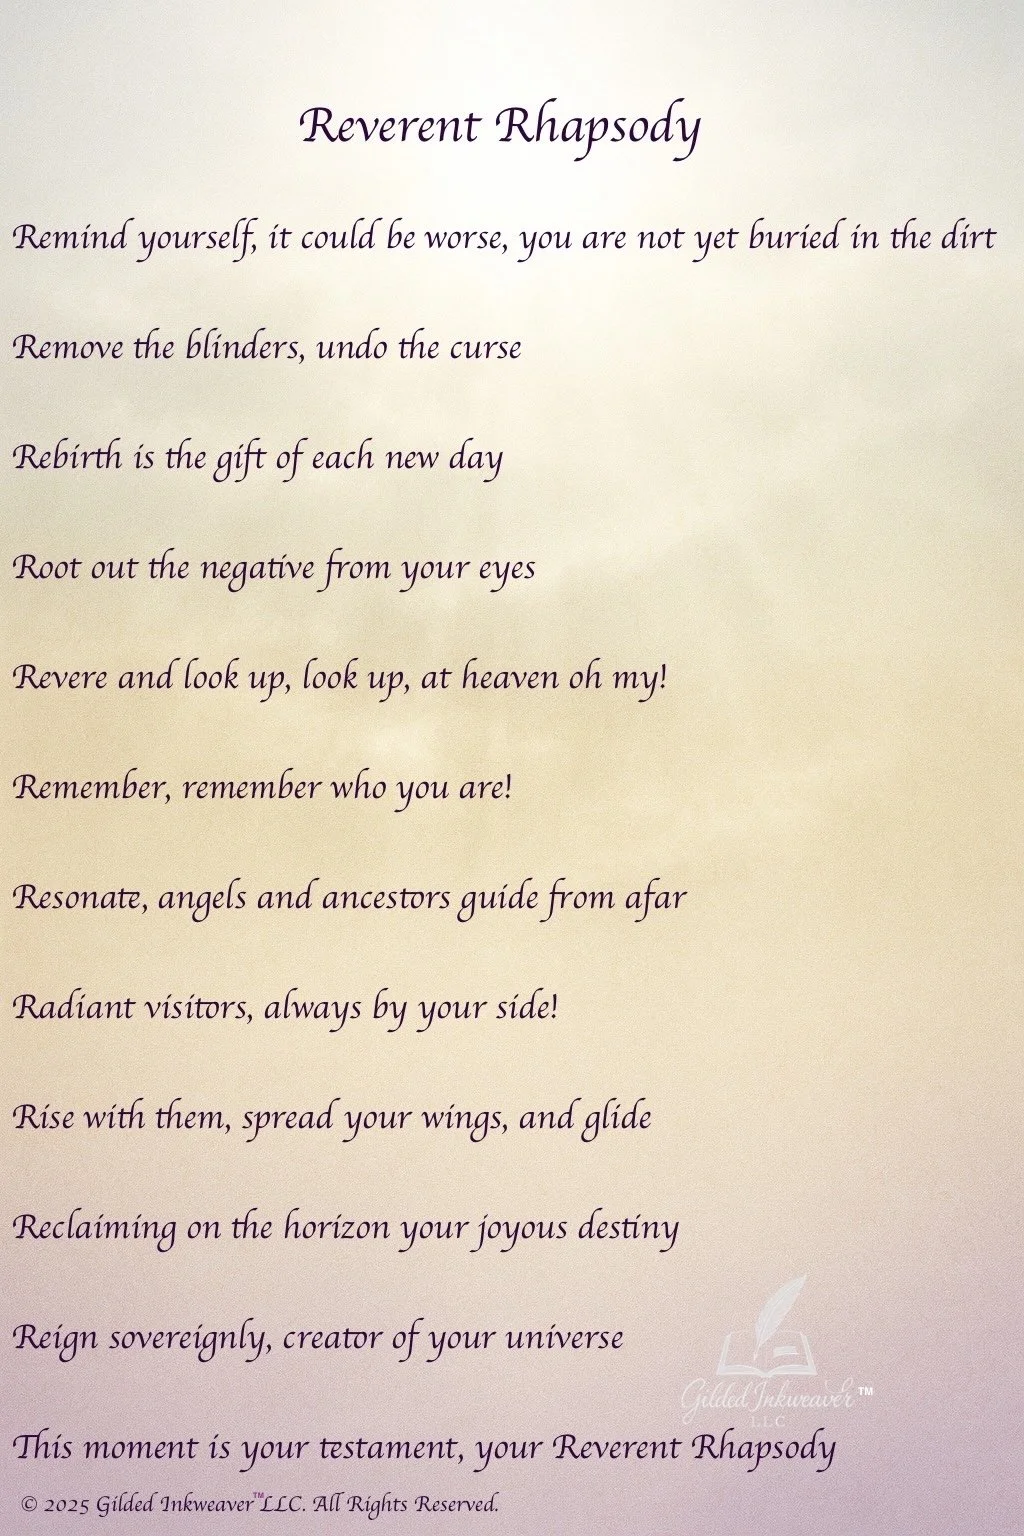 Reverent Rhapsody
Remind yourself, it could be worse, you are not yet buried in the dirt
Remove the blinders, undo the curse
Rebirth is the gift of each new day
Root out the negative from your eyes
Revere and look up, look up, at heaven oh my!
Remember, remember who you are!
Resonate, angels and ancestors guide from afar
Radiant visitors, always by your side!
Rise with them, spread your wings, and glide
Reclaiming on the horizon your joyous destiny
Reign sovereignly, creator of your universe
Gilded Inkweaver™
LLC
This moment is your testament, your Reverent Rhapsody
© 2025 Gilded Inkweaver™ LLC. All Rights Reserved.